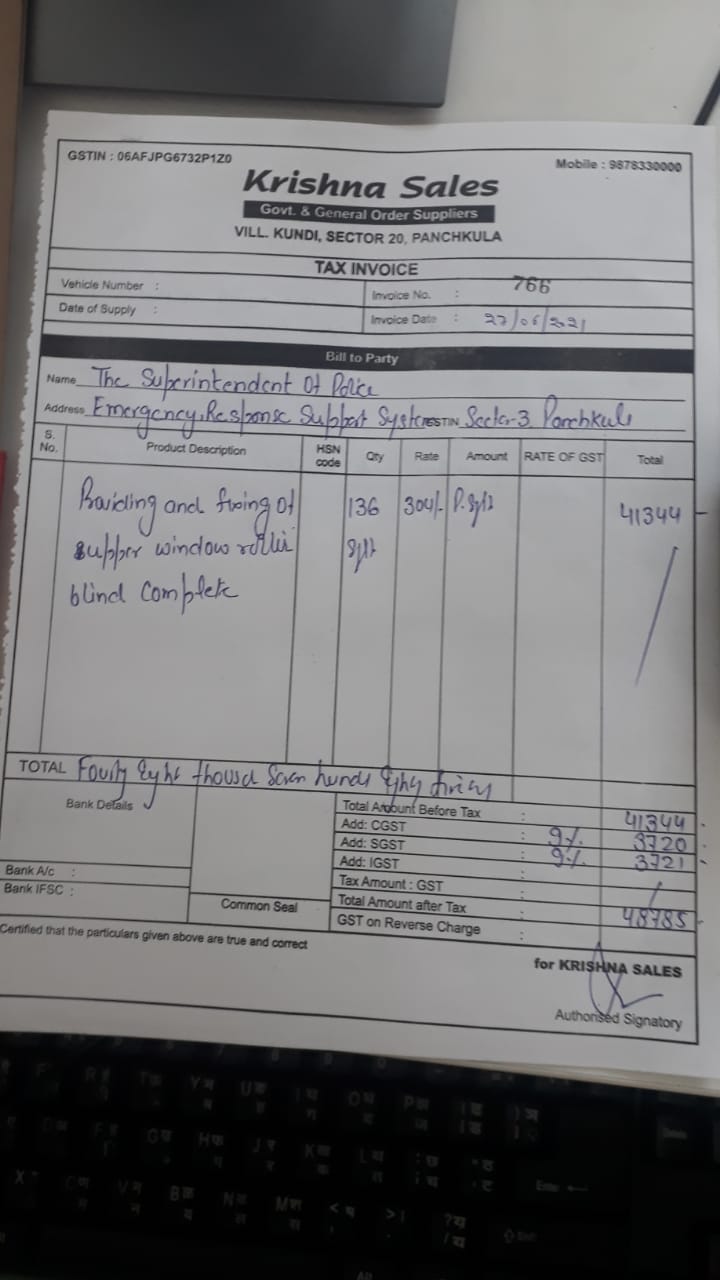 GSTIN : 06AFJPG6732P1Z0
Mobile : 9878330000
Krishna Sales
Govt. & General Order Suppliers
VILL. KUNDI, SECTOR 20, PANCHKULA
TAX INVOICE
Vehicle Number :
Invoice No. : 766
Date of Supply :
Invoice Date : 27/06/2021
Bill to Party
Name The Superintendent Of Police
Address Emergency Response Support System GSTIN Sector-3 Panchkula
S. No. Product Description HSN code Qty Rate Amount RATE OF GST Total
Providing and fixing of 136 304/- P.Sqft 41344
supper window roller Sqft
blind complete
TOTAL Fourty Eight thousd Seven hundr Eighty
Bank Details
Total Amount Before Tax : 41344
Add: CGST : 9% 3720
Add: SGST : 9% 3721
Add: IGST :
Bank A/c :
Tax Amount : GST :
Bank IFSC :
Total Amount after Tax : 48785
Common Seal
GST on Reverse Charge :
Certified that the particulars given above are true and correct
for KRISHNA SALES
Authorised Signatory